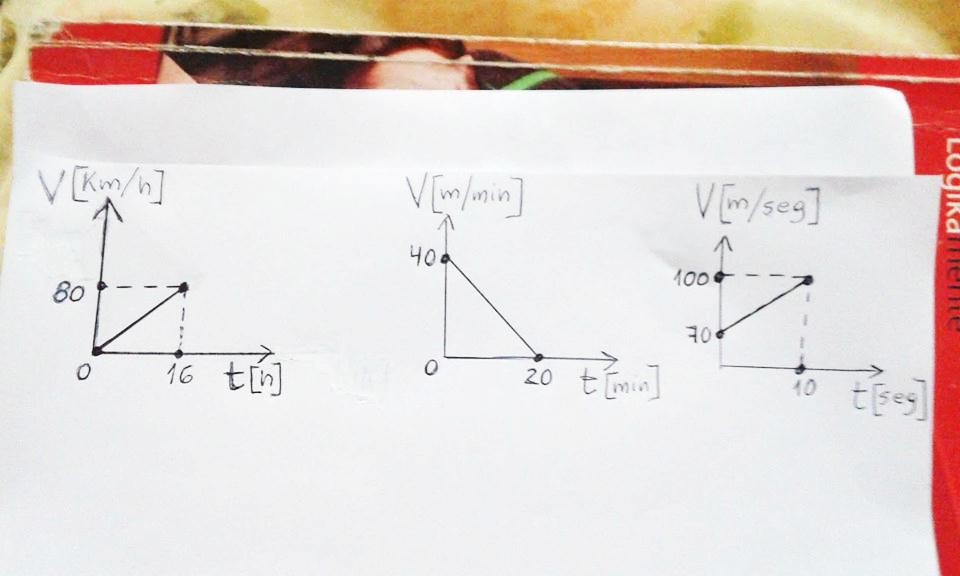 V[Km/h]
80
0
16
t[h]
V[m/min]
40
0
20
t[min]
V[m/seg]
100
70
10
t[seg]
Logikamente